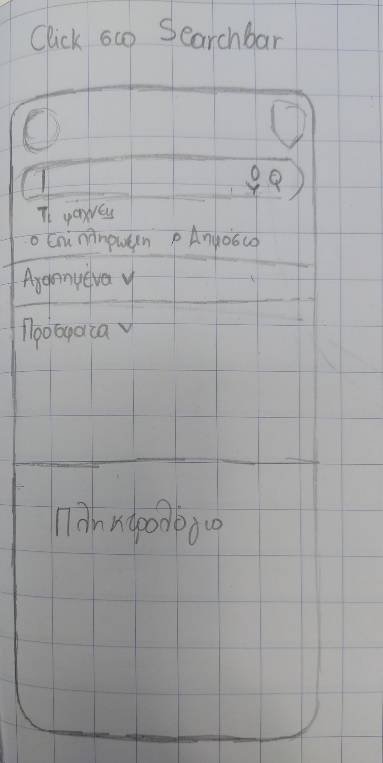 Click στο Searchbar
Τι ψάχνεις
Επί πληρωμη Δημόσιο
Αγαπημένα
Πρόσφατα
Πληκτρολόγιο